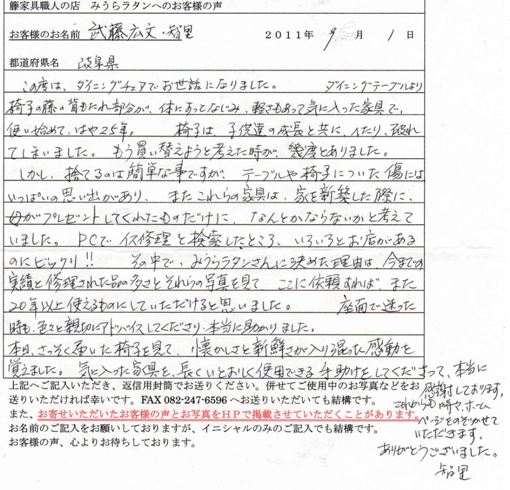 籐家具職人の店 みうらラタンへのお客様の声
お客様のお名前 武藤宏文・智里 2011年 9月 1日
都道府県名 岐阜県
この度は、ダイニングチェアでお世話になりました。 ダイニングテーブルより
椅子の藤の背もたれ部分が、体にあってなじみ、軽さもあって気に入った家具で、
使い始めて、はや25年。 椅子は子供達の成長と共に、いたり、破れ
てしまいました。もう買い替えようと考えた時が、幾度とありました。
しかし、捨てるのは簡単な事ですが、テーブルや椅子についた傷には
いっぱいの思い出があり、またこれらの家具は、家を新築した際に、
母がプレゼントしてくれたものだけに、なんとかならないかと考えて
いました。PCでイス修理と検索したところ、いろいろとお店がある
のにビックリ!! その中で、みうらラタンさんに決めた理由は、今までの
実績と修理された品の多さとそれらの写真を見て、ここに依頼すれば、また
20年以上使えるものにしていただけると思いました。 座面で迷った
時も、色々と親切にアドバイスしてくださり、本当に助かりました。
本日、さっそく届いた椅子を見て、懐かしさと新鮮さが入り混った感動を
覚えました。気に入った家具を、長くいとおしく使用できる手助けをしてくださって、本当に
感謝しております。
これからも時々、ホーム
ページをのぞかせて
いただきます。
ありがとうございました。
智里
上記へご記入いただき、返信用封筒でお送りください。併せてご使用中のお写真などをお
送りいただければ幸いです。FAX 082-247-6596 へお送りいただいても結構です。
また、お寄せいただいたお客様の声とお写真をHPで掲載させていただくことがあります。
お名前のご記入をお願いしておりますが、イニシャルのみのご記入でも結構です。
お客様の声、心よりお待ちしております。